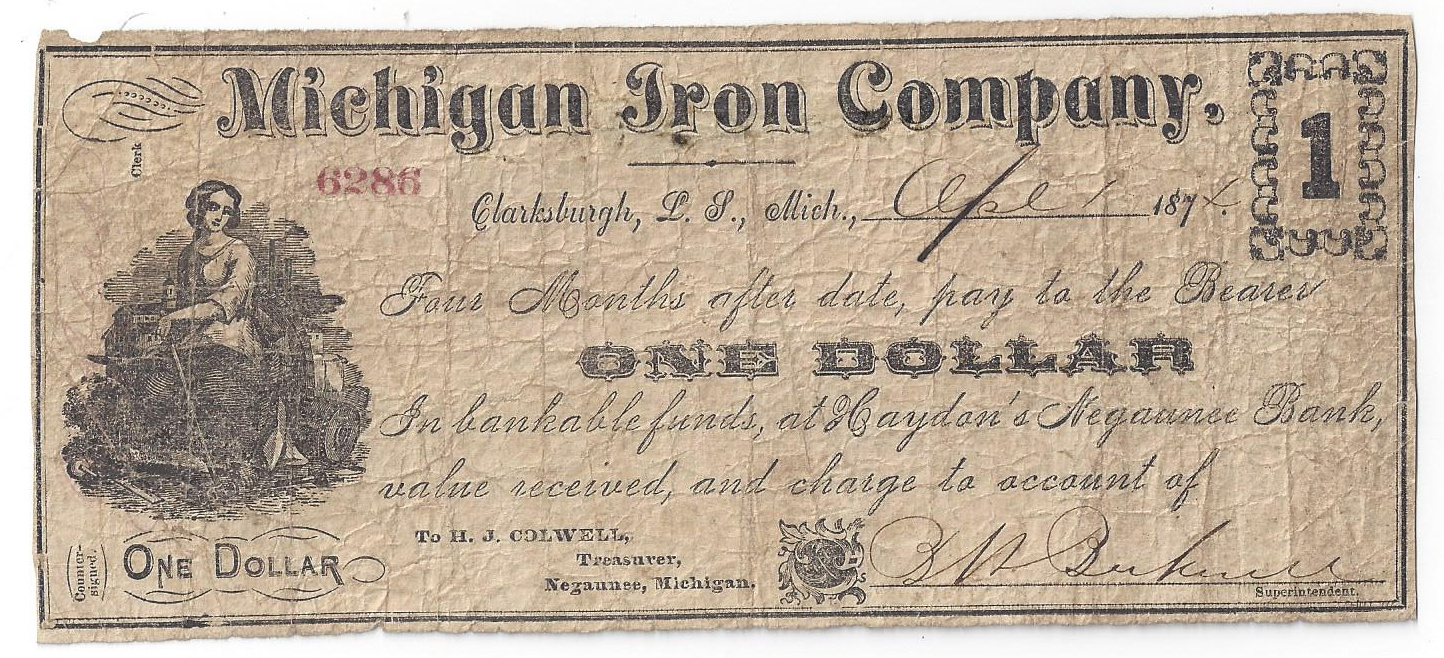 Michigan Iron Company,
1
Clerk
6286
Clarksburgh, L. S., Mich., 187
Four Months after date, pay to the Bearer
ONE DOLLAR
In bankable funds, at Haydon's Negaunee Bank,
value received, and charge to account of
To H. J. COLWELL,
Treasurer,
Negaunee, Michigan.
Counter-
signed.
ONE DOLLAR
Superintendent.